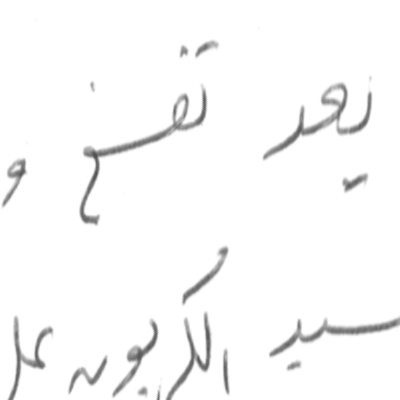 يعد تفسخ و
سيد الكربون عل